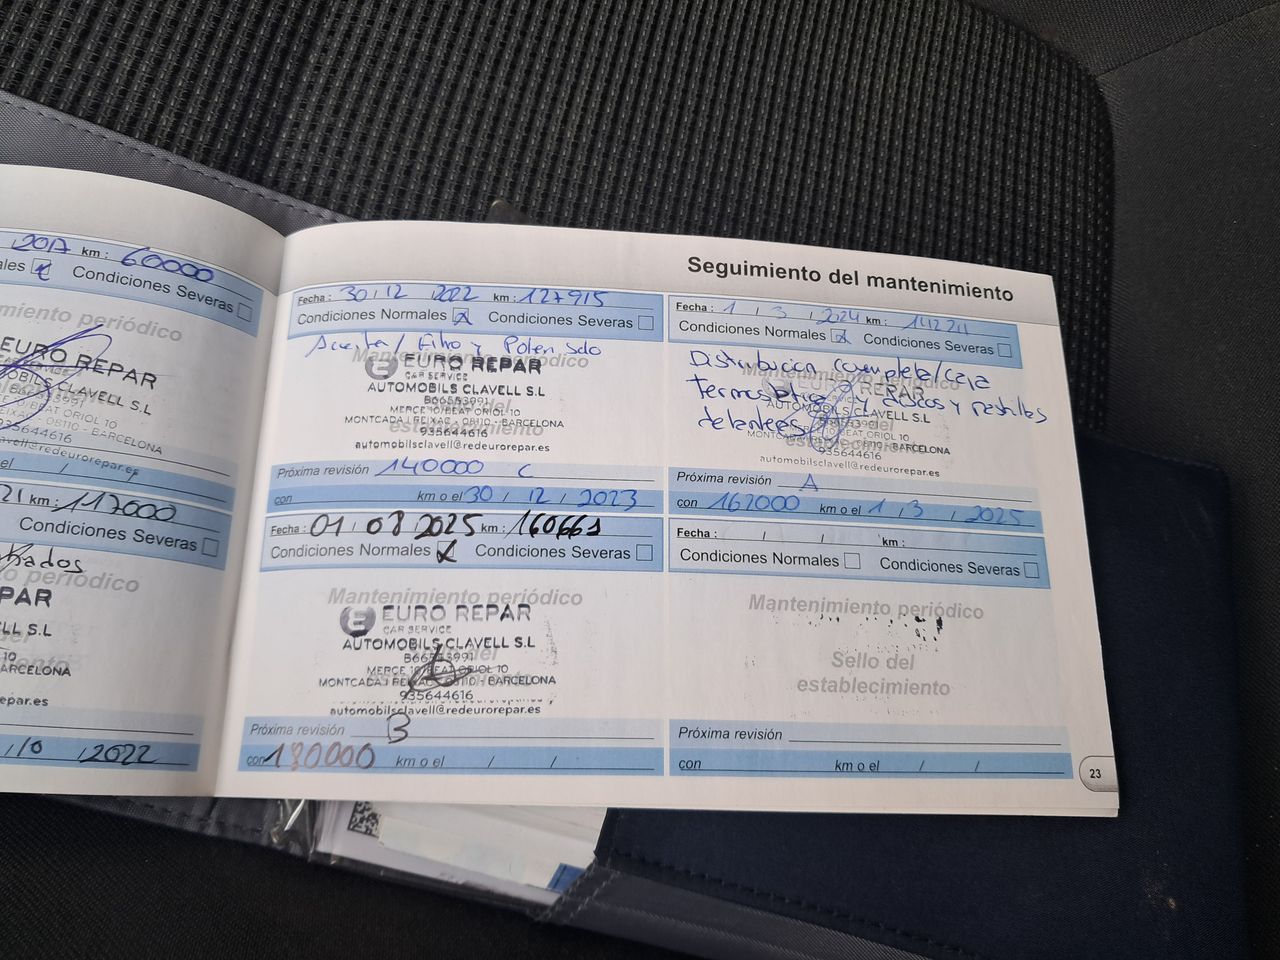 2017 km : 60000
Condiciones Severas
EURO REPAR
CLAVELL S.L
BARCELONA
935644616
@redeurorepar.es
21 km : 117000
Condiciones Severas
BARCELONA
10 / 2022
Seguimiento del mantenimiento
Fecha : 30 / 12 / 2022 km : 127915
Condiciones Normales Condiciones Severas
Aceite / Filtro y Polen solo
Mantenimiento periódico
EURO REPAR
CAR SERVICE
AUTOMOBILS CLAVELL S.L
B66583991
MERCE 10/BEAT ORIOL 10
MONTCADA I REIXAC - 08110 - BARCELONA
935644616
automobilsclavell@redeurorepar.es
Próxima revisión 140000 C
con km o el 30 / 12 / 2023
Fecha : 1 / 3 / 2024 km : 142211
Condiciones Normales Condiciones Severas
Distribucion completa / caja
termostatica y discos y pastillas
delanteras
Mantenimiento periódico
EURO REPAR
AUTOMOBILS CLAVELL S.L
MONTCADA I REIXAC - 08110 - BARCELONA
935644616
automobilsclavell@redeurorepar.es
Próxima revisión A
con 162000 km o el 1 / 3 / 2025
Fecha : 01 / 08 / 2025 km : 160661
Condiciones Normales Condiciones Severas
Mantenimiento periódico
EURO REPAR
CAR SERVICE
AUTOMOBILS CLAVELL S.L
B66583991
MERCE 10/BEAT ORIOL 10
MONTCADA I REIXAC - 08110 - BARCELONA
935644616
automobilsclavell@redeurorepar.es
Próxima revisión B
con 180000 km o el / /
Fecha : / / km :
Condiciones Normales Condiciones Severas
Mantenimiento periódico
Sello del
establecimiento
Próxima revisión
con km o el / /
23